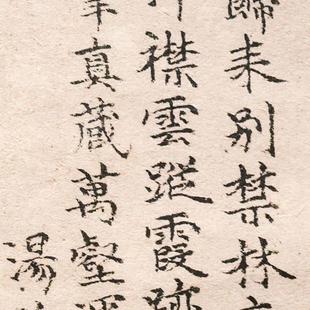 歸來别禁林
襟雲蹤霞跡
真藏萬壑
湯